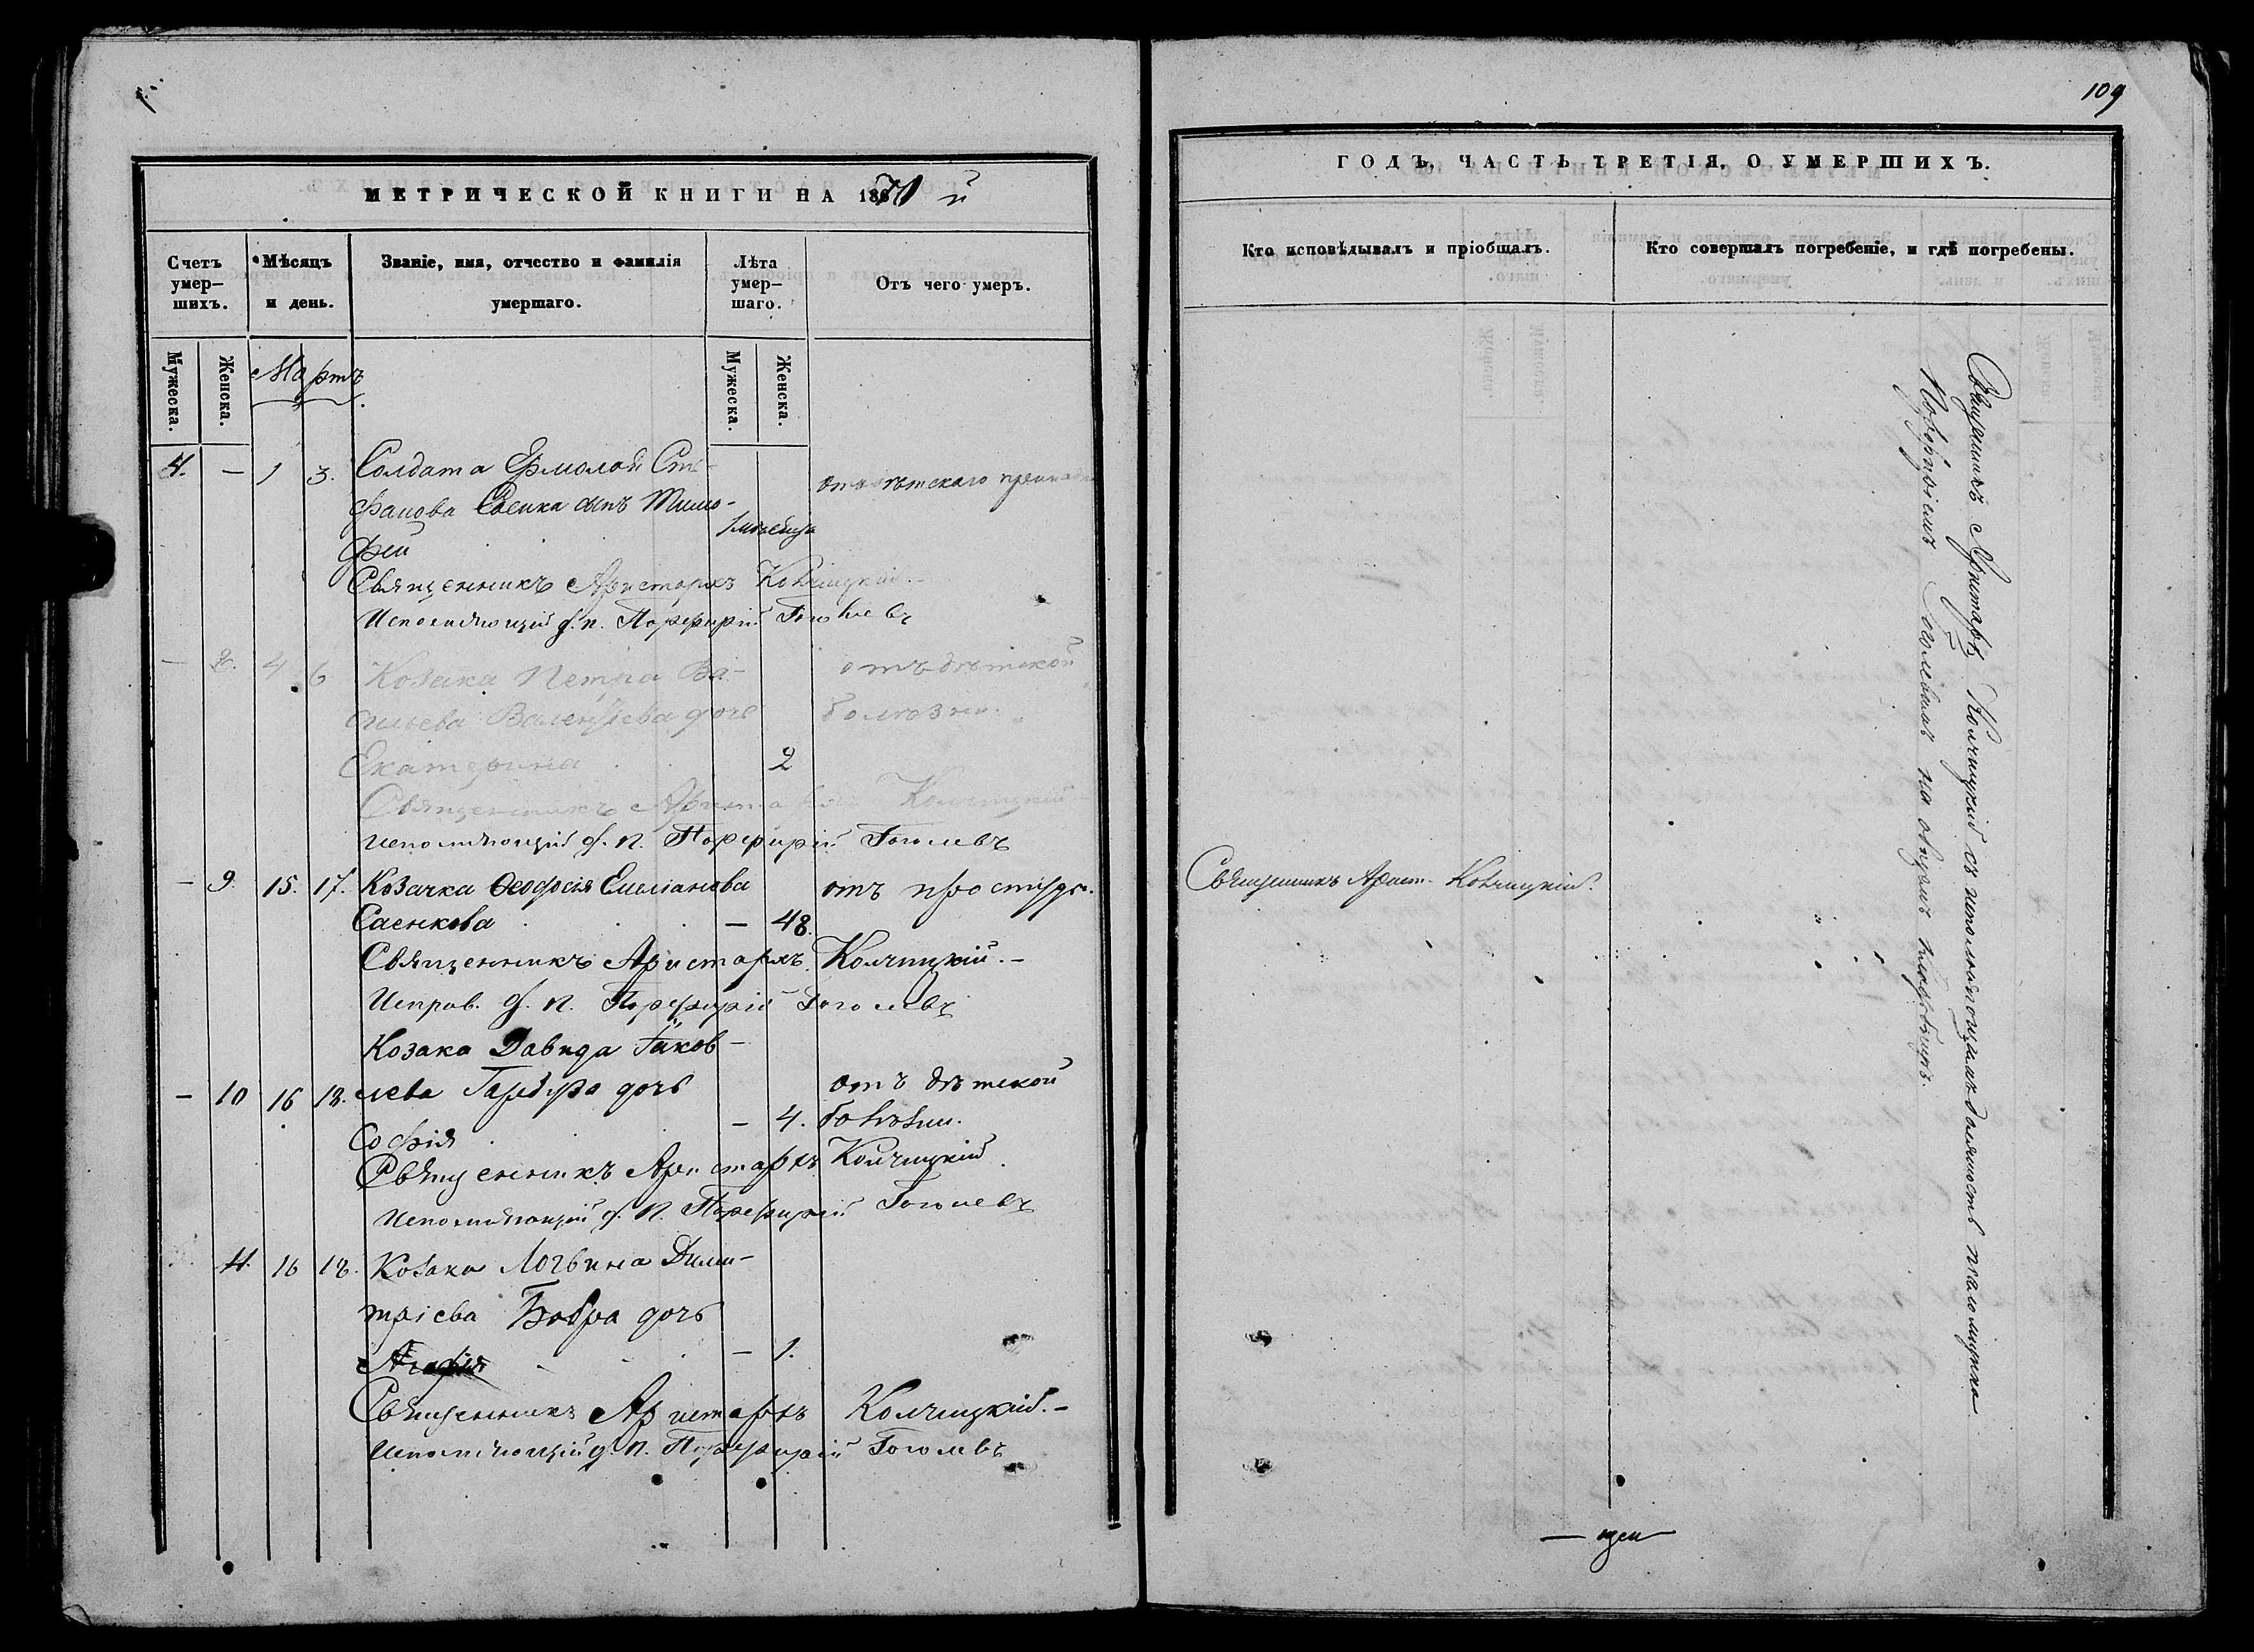 109
МЕТРИЧЕСКОЙ КНИГИ НА 1870 й
ГОДЪ, ЧАСТЬ ТРЕТІЯ, О УМЕРШИХЪ.
Счетъ умер-шихъ.
Мѣсяцъ и день.
Званіе, имя, отчество и фамилія умершаго.
Лѣта умер-шаго.
Отъ чего умеръ.
Мужеска.
Женска.
Мартъ
Мужеска.
Женска.
4. — 1 3. Солдата Ермолая Сте-
фанова Саенка сынъ Тимо-
фей
Священникъ Аристархъ Колчицкій.
Исполняющій д. п. Порфирій Гоголевъ
— 8. 4 6 Козака Петра Ва- отъ дѣтской
сильева дочь болѣзни.
Екатерина 2
Священникъ Аристархъ Колчицкій
Исполняющій д. п. Порфирій Гоголевъ
— 9. 15. 17. Козачка Ѳеодосія Емеліанова отъ простуды.
Саенкова — 48.
Священникъ Аристархъ Колчицкій. —
Исправ. д. п. Порфирій Гоголевъ
Козака Давида Іаков-
— 10 16 18. лева дочь отъ дѣтской
Софія — 4. болѣзни.
Священникъ Аристархъ Колчицкій
Исполняющій д. п. Порфирій Гоголевъ
11. 16 18. Козака Логвина Дими-
тріева Бобра дочь
Агафія — 1.
Священникъ Аристархъ Колчицкій. —
Исполняющій д. п. Порфирій Гоголевъ
Кто исповѣдывалъ и пріобщалъ.
Кто совершалъ погребеніе, и гдѣ погребены.
Священникъ Арист. Колчицкій.
Священникъ Аристархъ Колчицкій съ исполняющимъ должность псаломщика
Порфиріемъ Гоголевымъ на общемъ кладбищѣ.